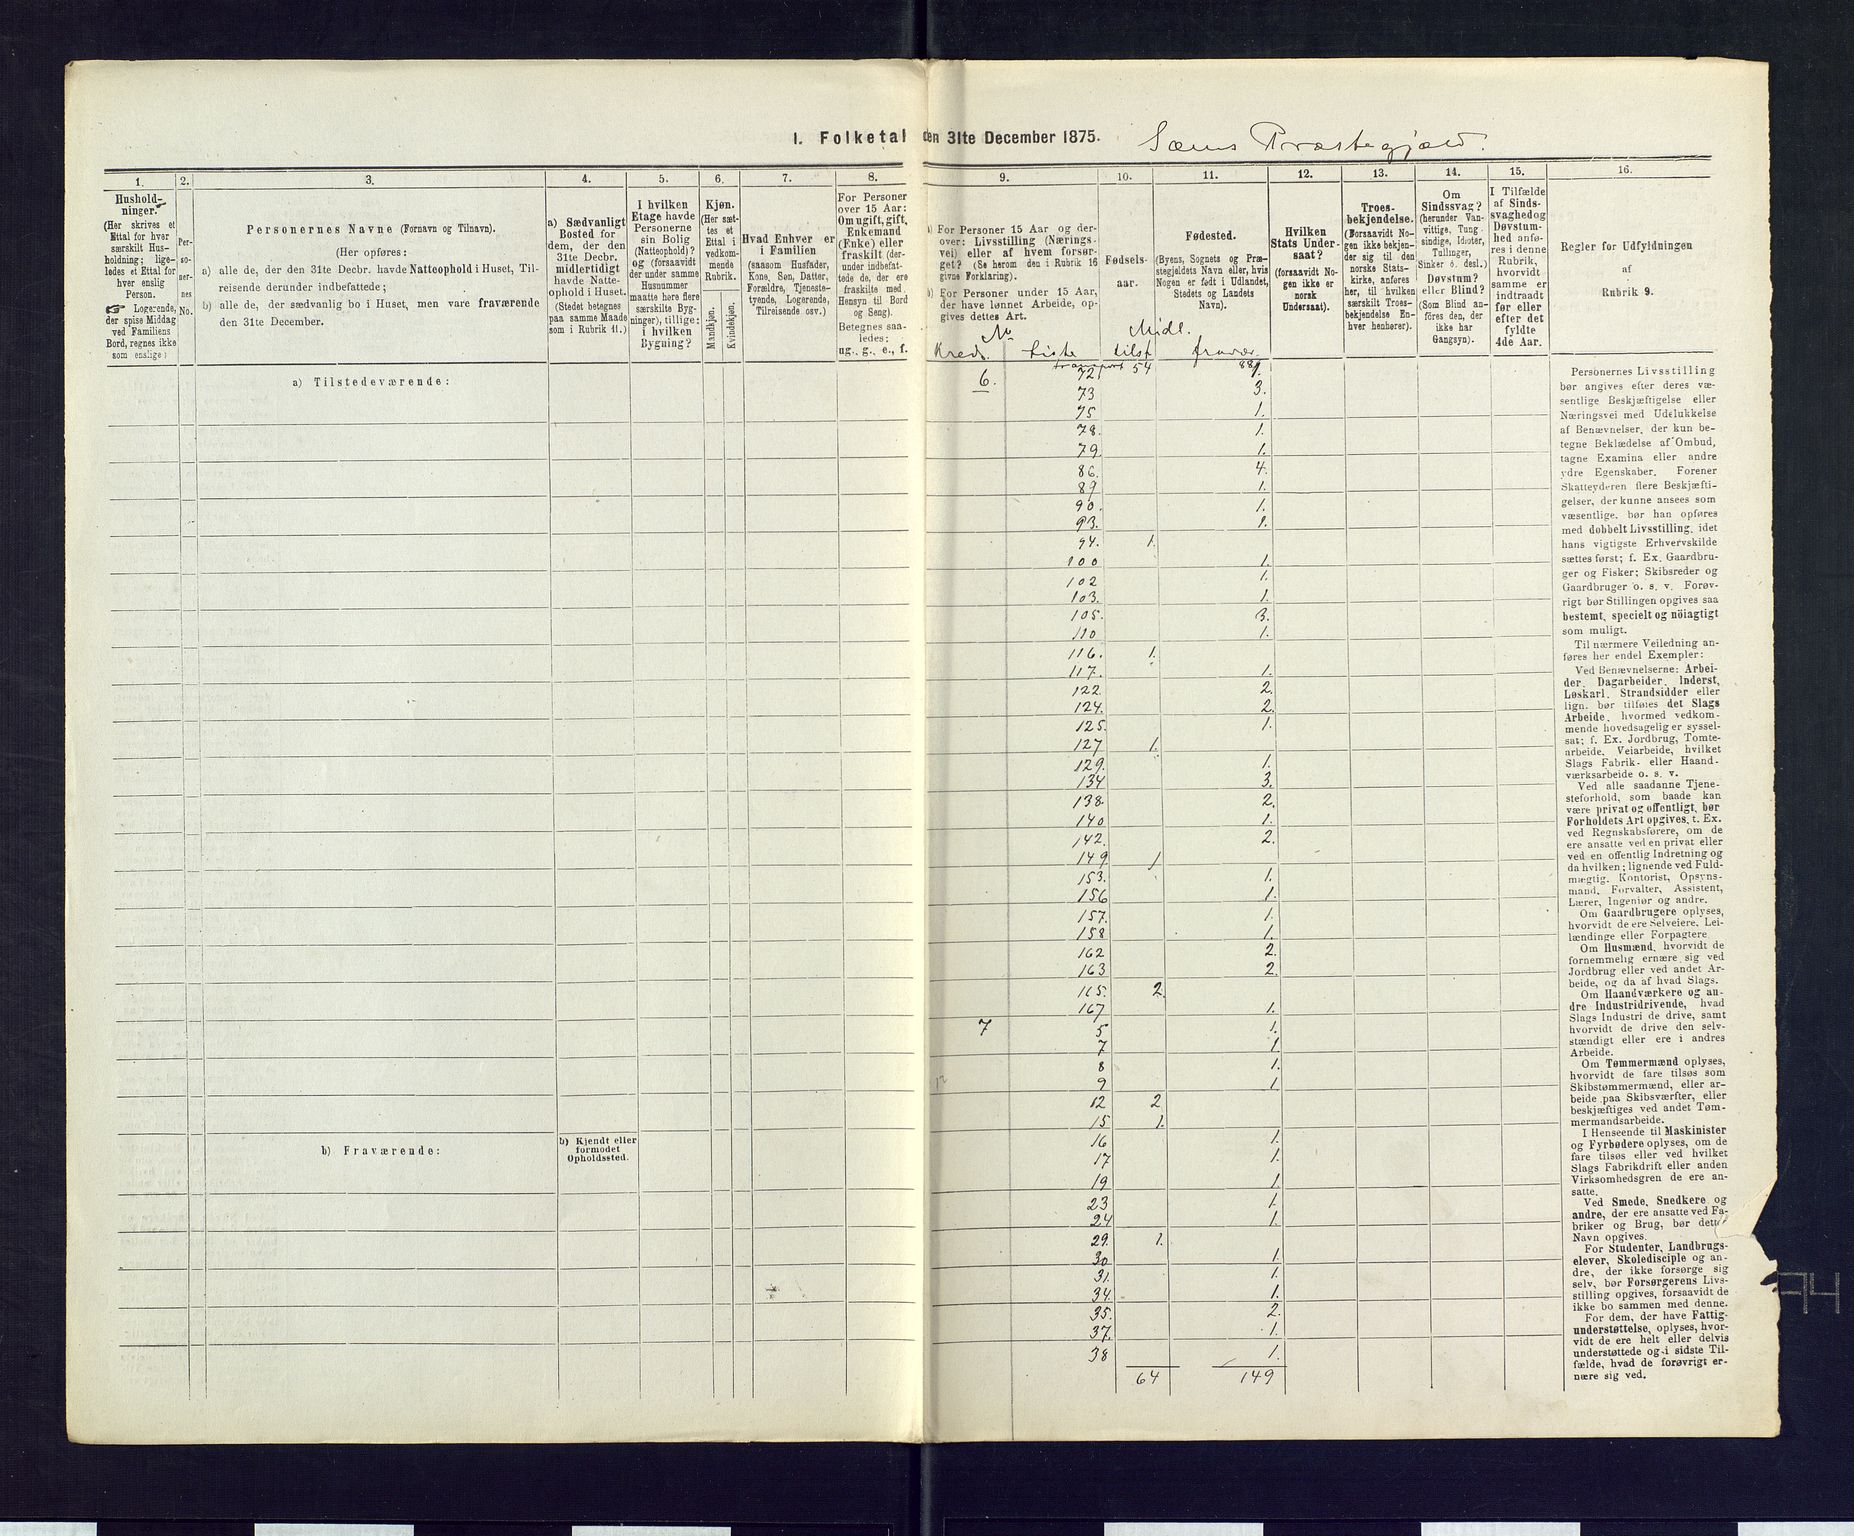 I. Folketal den 31te December 1875. Sems Præstegjeld.
1.
2.
3.
4.
5.
6.
7.
8.
9.
10.
11.
12.
13.
14.
15.
16.
Hushold-
ninger.
(Her skrives et
Ettal for hver
særskilt Hus-
holdning; lige-
ledes et Ettal for
hver enslig
Person.
☞ Logerende,
der spise Middag
ved Familiens
Bord, regnes ikke
som enslige)
Per-
so-
ner-
nes
No.
Personernes Navne (Fornavn og Tilnavn).
(Her opføres:
a) alle de, der den 31te Decbr. havde Natteophold i Huset, Til-
reisende derunder indbefattede;
b) alle de, der sædvanlig bo i Huset, men vare fraværende
den 31te December.
a) Sædvanligt
Bosted for
dem, der den
31te Decbr.
midlertidigt
havde Natte-
ophold i Huset.
(Stedet betegnes
paa samme Maade
som i Rubrik 11.)
I hvilken
Etage havde
Personerne
sin Bolig
(Natteophold)?
og (forsaavidt
der under samme
Husnummer
maatte høre flere
særskilte Byg-
ninger), tillige:
i hvilken
Bygning?
Kjøn.
(Her sæt-
tes et
Ettal i
vedkom-
mende
Rubrik.
Mandkjøn.
Kvindekjøn.
Hvad Enhver er
i Familien
(saasom Husfader,
Kone, Søn, Datter,
Forældre, Tjeneste-
tyende, Logerende,
Tilreisende osv.)
For Personer
over 15 Aar:
Om ugift, gift,
Enkemand
(Enke) eller
fraskilt (der-
under indbefat-
tede de, der ere
fraskilte med
Hensyn til Bord
og Seng).
Betegnes saa-
ledes:
ug., g., e., f.
a) For Personer 15 Aar og der-
over: Livsstilling (Nærings-
vei) eller af hvem forsør-
get? (Se herom den i Rubrik 16
givne Forklaring).
b) For Personer under 15 Aar,
der have lønnet Arbeide, op-
gives dettes Art.
Fødsels-
aar.
Fødested.
(Byens, Sognets og Præ-
stegjeldets Navn eller, hvis
Nogen er født i Udlandet,
Stedets og Landets
Navn).
Hvilken
Stats Under-
saat?
(forsaavidt No-
gen ikke er
norsk
Undersaat).
Troes-
bekjendelse.
(Forsaavidt No-
gen ikke bekjen-
der sig til den
norske Stats-
kirke, anføres
her, til hvilken
særskilt Troes-
bekjendelse En-
hver henhører).
Om
Sindssvag?
(herunder Van-
vittige, Tung-
sindige, Idioter,
Tullinger,
Sinker o. desl.)
Døvstum?
eller Blind?
(Som Blind an-
føres den, der
ikke har
Gangsyn).
I Tilfælde
af Sinds-
svaghed og
Døvstum-
hed anfø-
res i denne
Rubrik,
hvorvidt
samme er
indtraadt
før eller
efter det
fyldte
4de Aar.
Regler for Udfyldningen
af
Rubrik 9.
No Midl.
Kreds. Liste tilst fravær.
transport 54 88
a) Tilstedeværende:
6. 72 1.
73 3.
75 1.
78. 1.
79 1.
86. 4.
89 1.
90. 1.
93. 1.
94. 1.
100 1.
102 1.
103. 1.
105. 3.
110 1.
116. 1.
117. 1.
122 2.
124. 2.
125. 1.
127 1.
129. 1.
134 3.
138. 2.
140 1.
142. 2.
149 1
153. 1.
156 1.
157. 1.
158 1.
162 2.
163 2.
165. 2.
167 1.
7 5 1.
7 1.
8 1.
9 1.
12 2
15 1.
16 1.
17 1.
19 1.
23 1.
24 1.
29. 1.
30 1.
31. 1.
34. 1.
35. 2.
37. 1.
38 1.
64 149
b) Fraværende:
b) Kjendt eller
formodet
Opholdssted.
Personernes Livsstilling
bør angives efter deres væ-
sentlige Beskjæftigelse eller
Næringsvei med Udelukkelse
af Benævnelser, der kun be-
tegne Beklædelse af Ombud,
tagne Examina eller andre
ydre Egenskaber. Forener
Skatteyderen flere Beskjæfti-
gelser, der kunne ansees som
væsentlige, bør han opføres
med dobbelt Livsstilling, idet
hans vigtigste Erhvervskilde
sættes først; f. Ex. Gaardbru-
ger og Fisker; Skibsreder og
Gaardbruger o. s. v. Forøv-
rigt bør Stillingen opgives saa
bestemt, specielt og nöiagtigt
som muligt.
Til nærmere Veiledning an-
føres her endel Exempler:
Ved Benævnelserne: Arbei-
der, Dagarbeider, Inderst,
Løskarl, Strandsidder eller
lign. bør tilføies det Slags
Arbeide, hvormed vedkom-
mende hovedsagelig er syssel-
sat; f. Ex. Jordbrug, Tomte-
arbeide, Veiarbeide, hvilket
Slags Fabrik- eller Haand-
værksarbeide o. s. v.
Ved alle saadanne Tjene-
steforhold, som baade kan
være privat og offentligt, bør
Forholdets Art opgives, t. Ex.
ved Regnskabsførere, om de
ere ansatte ved en privat eller
ved en offentlig Indretning og
da hvilken; lignende ved Fuld-
mægtig, Kontorist, Opsyns-
mand, Forvalter, Assistent,
Lærer, Ingeniør og andre.
Om Gaardbrugere oplyses,
hvorvidt de ere Selveiere, Lei-
lændinge eller Forpagtere.
Om Husmænd, hvorvidt de
fornemmelig ernære sig ved
Jordbrug eller ved andet Ar-
beide, og da af hvad Slags.
Om Haandværkere og an-
dre Industridrivende, hvad
Slags Industri de drive, samt
hvorvidt de drive den selv-
stændigt eller ere i andres
Arbeide.
Om Tømmermænd oplyses,
hvorvidt de fare tilsøs som
Skibstømmermænd, eller ar-
beide paa Skibsværfter, eller
beskjæftiges ved andet Tøm-
mermandsarbeide.
I Henseende til Maskinister
og Fyrbødere oplyses, om de
fare tilsøs eller ved hvilket
Slags Fabrikdrift eller anden
Virksomhedsgren de ere an-
satte.
Ved Smede, Snedkere og
andre, der ere ansatte ved Fa-
briker og Brug, bør dettes
Navn opgives.
For Studenter, Landbrugs-
elever, Skoledisciple og an-
dre, der ikke forsørge sig
selv, bør Forsørgerens Livs-
stilling opgives, forsaavidt de
ikke bo sammen med denne.
For dem, der have Fattig-
understøttelse, oplyses, hvor-
vidt de ere helt eller delvis
understøttede og i sidste Til-
fælde, hvad de forøvrigt er-
nære sig ved.